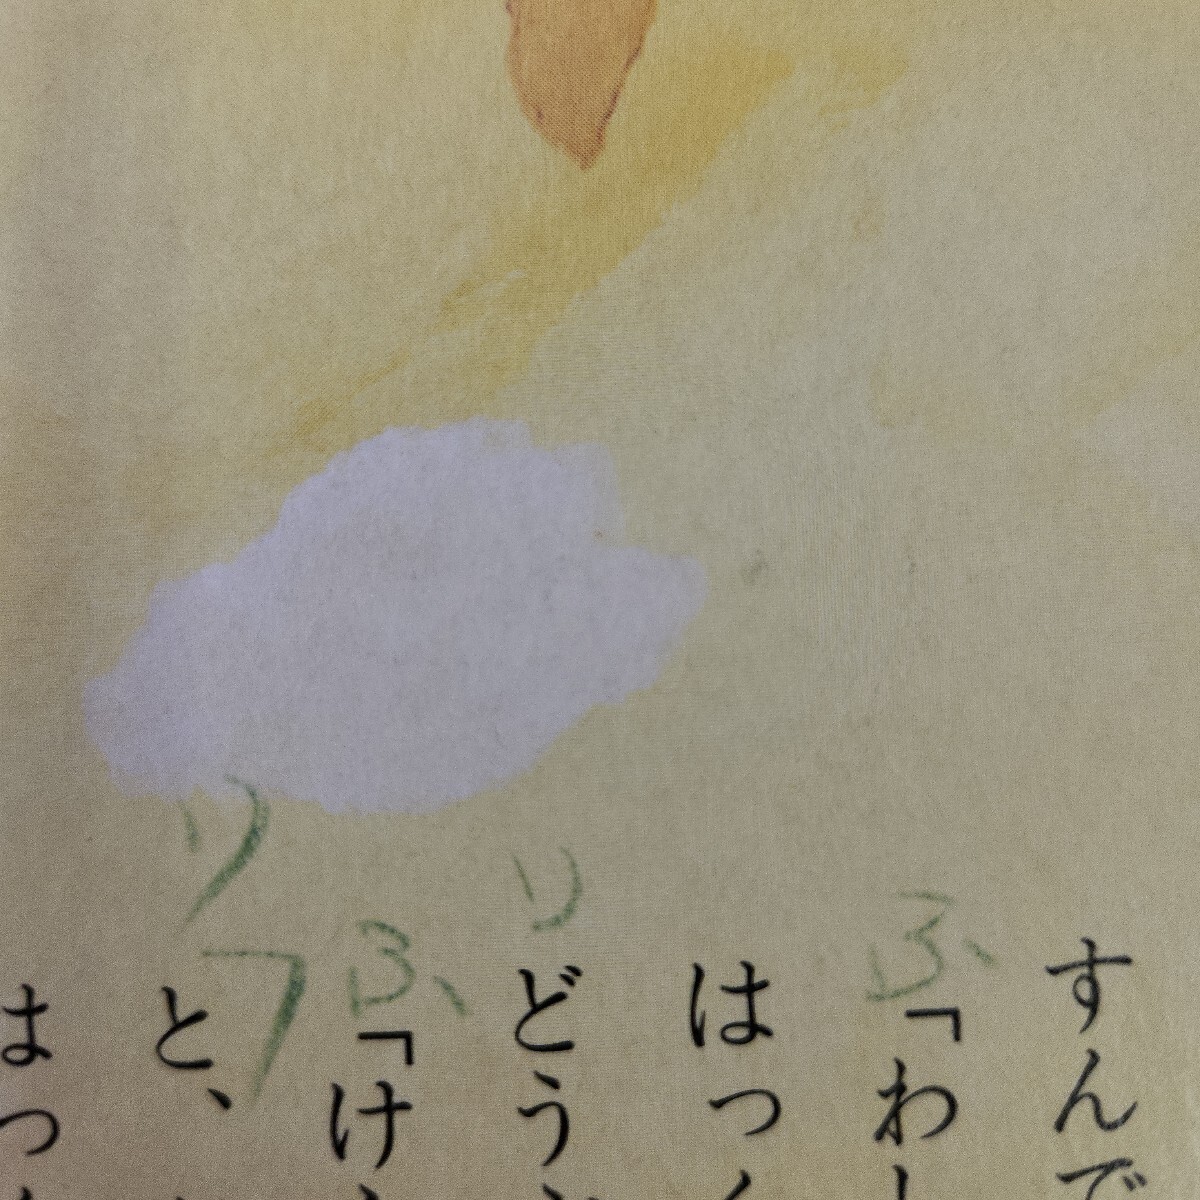 すんで
ふ
「わ
はっ
り
どう
ふ
「け
リフ
と、
はっ